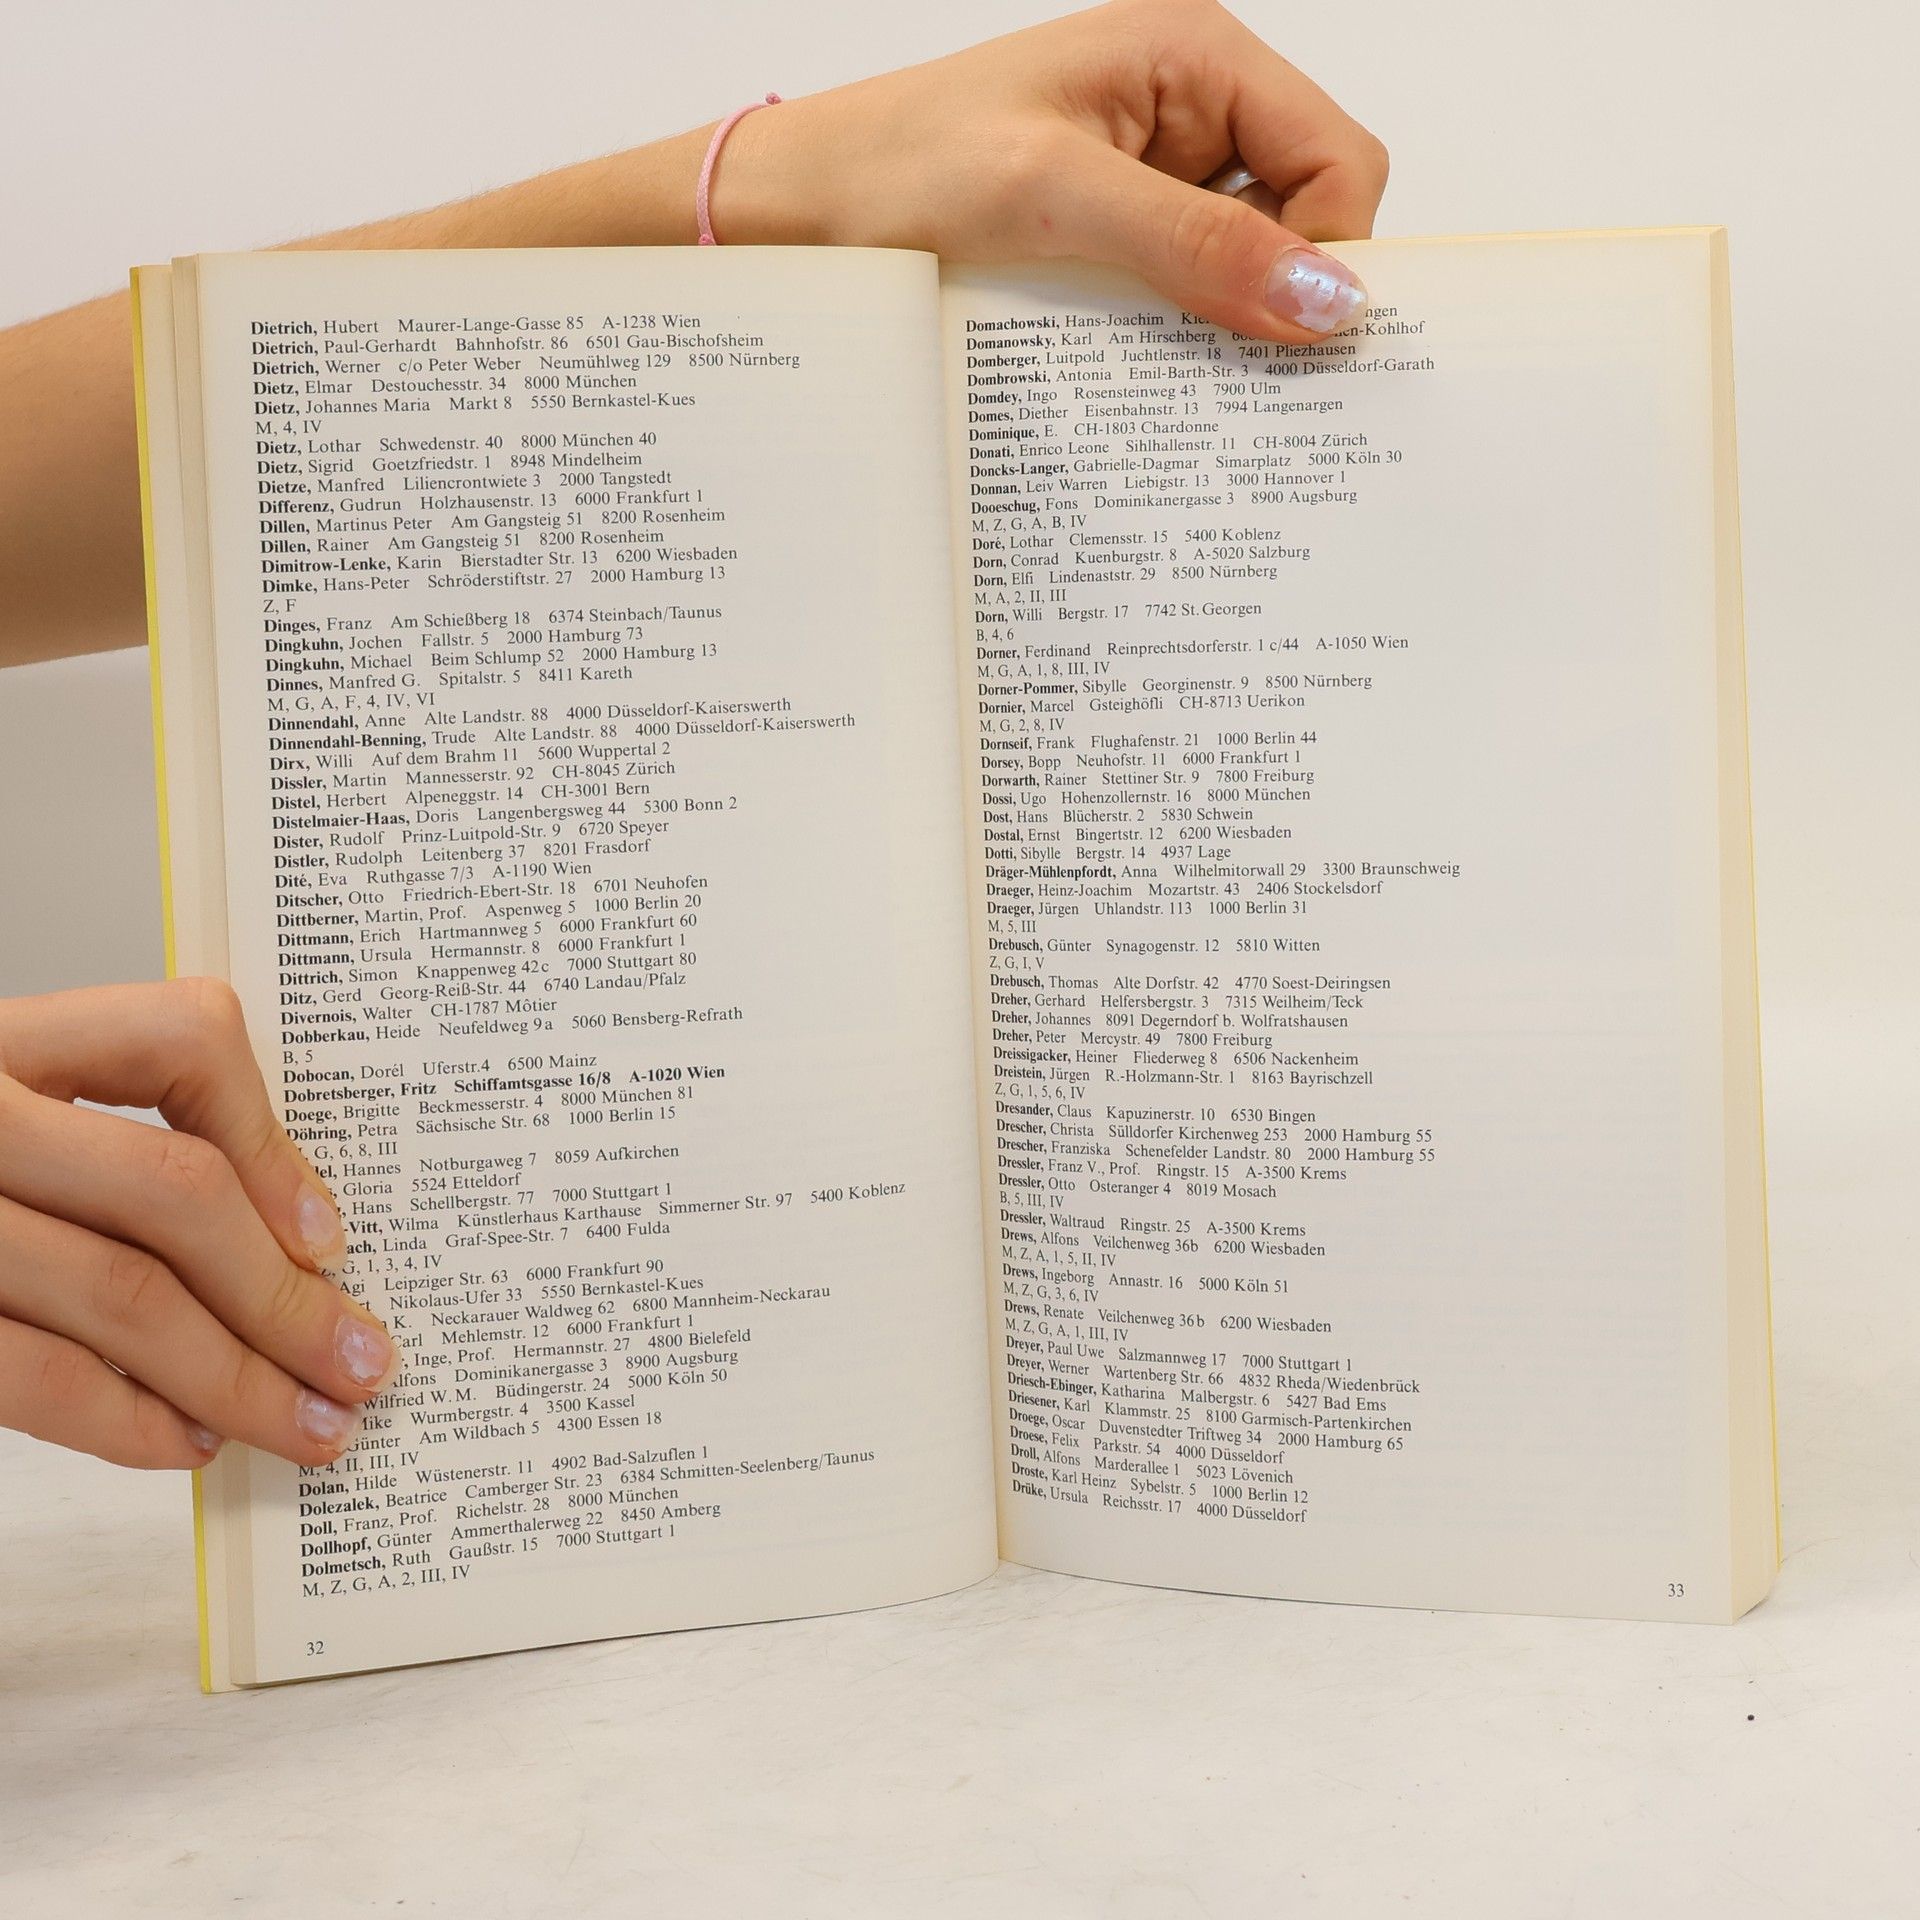 Dietrich, Hubert Maurer-Lange-Gasse 85 A-1238 Wien
Dietrich, Paul-Gerhardt Bahnhofstr. 86 6501 Gau-Bischofsheim
Dietrich, Werner c/o Peter Weber Neumühlweg 129 8500 Nürnberg
Dietz, Elmar Destouchesstr. 34 8000 München
Dietz, Johannes Maria Markt 8 5550 Bernkastel-Kues
M, 4, IV
Dietz, Lothar Schwedenstr. 40 8000 München 40
Dietz, Sigrid Goetzfriedstr. 1 8948 Mindelheim
Dietze, Manfred Liliencrontwiete 3 2000 Tangstedt
Differenz, Gudrun Holzhausenstr. 13 6000 Frankfurt 1
Dillen, Martinus Peter Am Gangsteig 51 8200 Rosenheim
Dillen, Rainer Am Gangsteig 51 8200 Rosenheim
Dimitrow-Lenke, Karin Bierstadter Str. 13 6200 Wiesbaden
Dimke, Hans-Peter Schröderstiftstr. 27 2000 Hamburg 13
Z, F
Dinges, Franz Am Schießberg 18 6374 Steinbach/Taunus
Dingkuhn, Jochen Fallstr. 5 2000 Hamburg 73
Dingkuhn, Michael Beim Schlump 52 2000 Hamburg 13
Dinnes, Manfred G. Spitalstr. 5 8411 Kareth
M, G, A, F, 4, IV, VI
Dinnendahl, Anne Alte Landstr. 88 4000 Düsseldorf-Kaiserswerth
Dinnendahl-Benning, Trude Alte Landstr. 88 4000 Düsseldorf-Kaiserswerth
Dirx, Willi Auf dem Brahm 11 5600 Wuppertal 2
Dissler, Martin Mannesserstr. 92 CH-8045 Zürich
Distel, Herbert Alpeneggstr. 14 CH-3001 Bern
Distelmaier-Haas, Doris Langenbergsweg 44 5300 Bonn 2
Dister, Rudolf Prinz-Luitpold-Str. 9 6720 Speyer
Distler, Rudolph Leitenberg 37 8201 Frasdorf
Dité, Eva Ruthgasse 7/3 A-1190 Wien
Ditscher, Otto Friedrich-Ebert-Str. 18 6701 Neuhofen
Dittberner, Martin, Prof. Aspenweg 5 1000 Berlin 20
Dittmann, Erich Hartmannweg 5 6000 Frankfurt 60
Dittmann, Ursula Hermannstr. 8 6000 Frankfurt 1
Dittrich, Simon Knappenweg 42c 7000 Stuttgart 80
Ditz, Gerd Georg-Reiß-Str. 44 6740 Landau/Pfalz
Divernois, Walter CH-1787 Môtier
Dobberkau, Heide Neufeldweg 9a 5060 Bensberg-Refrath
B, 5
Dobocan, Dorél Uferstr.4 6500 Mainz
Dobretsberger, Fritz Schiffamtsgasse 16/8 A-1020 Wien
Doege, Brigitte Beckmesserstr. 4 8000 München 81
Döhring, Petra Sächsische Str. 68 1000 Berlin 15
G, 6, 8, III
Hannes Notburgaweg 7 8059 Aufkirchen
Gloria 5524 Etteldorf
Hans Schellbergstr. 77 7000 Stuttgart 1
-Vitt, Wilma Künstlerhaus Karthause Simmerner Str. 97 5400 Koblenz
ach, Linda Graf-Spee-Str. 7 6400 Fulda
G, 1, 3, 4, IV
Agi Leipziger Str. 63 6000 Frankfurt 90
Nikolaus-Ufer 33 5550 Bernkastel-Kues
K. Neckarauer Waldweg 62 6800 Mannheim-Neckarau
Carl Mehlemstr. 12 6000 Frankfurt 1
Inge, Prof. Hermannstr. 27 4800 Bielefeld
Alfons Dominikanergasse 3 8900 Augsburg
Wilfried W. M. Büdingerstr. 24 5000 Köln 50
Mike Wurmbergstr. 4 3500 Kassel
Günter Am Wildbach 5 4300 Essen 18
M, 4, II, III, IV
Dolan, Hilde Wüstenerstr. 11 4902 Bad-Salzuflen 1
Dolezalek, Beatrice Camberger Str. 23 6384 Schmitten-Seelenberg/Taunus
Doll, Franz, Prof. Richelstr. 28 8000 München
Dollhopf, Günter Ammerthalerweg 22 8450 Amberg
Dolmetsch, Ruth Gaußstr. 15 7000 Stuttgart 1
M, Z, G, A, 2, III, IV
32
Domachowski, Hans-Joachim
Domanowsky, Karl Am Hirschberg -Kohlhof
Domberger, Luitpold Juchtlenstr. 18 7401 Pliezhausen
Dombrowski, Antonia Emil-Barth-Str. 3 4000 Düsseldorf-Garath
Domdey, Ingo Rosensteinweg 43 7900 Ulm
Domes, Diether Eisenbahnstr. 13 7994 Langenargen
Dominique, E. CH-1803 Chardonne
Donati, Enrico Leone Sihlhallenstr. 11 CH-8004 Zürich
Doncks-Langer, Gabrielle-Dagmar Simarplatz 5000 Köln 30
Donnan, Leiv Warren Liebigstr. 13 3000 Hannover 1
Dooeschug, Fons Dominikanergasse 3 8900 Augsburg
M, Z, G, A, B, IV
Doré, Lothar Clemensstr. 15 5400 Koblenz
Dorn, Conrad Kuenburgstr. 8 A-5020 Salzburg
Dorn, Elfi Lindenaststr. 29 8500 Nürnberg
M, A, 2, II, III
Dorn, Willi Bergstr. 17 7742 St. Georgen
B, 4, 6
Dorner, Ferdinand Reinprechtsdorferstr. 1 c/44 A-1050 Wien
M, G, A, 1, 8, III, IV
Dorner-Pommer, Sibylle Georginenstr. 9 8500 Nürnberg
Dornier, Marcel Gsteighöfli CH-8713 Uerikon
M, G, 2, 8, IV
Dornseif, Frank Flughafenstr. 21 1000 Berlin 44
Dorsey, Bopp Neuhofstr. 11 6000 Frankfurt 1
Dorwarth, Rainer Stettiner Str. 9 7800 Freiburg
Dossi, Ugo Hohenzollernstr. 16 8000 München
Dost, Hans Blücherstr. 2 5830 Schwein
Dostal, Ernst Bingertstr. 12 6200 Wiesbaden
Dotti, Sibylle Bergstr. 14 4937 Lage
Dräger-Mühlenpfordt, Anna Wilhelmitorwall 29 3300 Braunschweig
Draeger, Heinz-Joachim Mozartstr. 43 2406 Stockelsdorf
Draeger, Jürgen Uhlandstr. 113 1000 Berlin 31
M, 5, III
Drebusch, Günter Synagogenstr. 12 5810 Witten
Z, G, I, V
Drebusch, Thomas Alte Dorfstr. 42 4770 Soest-Deiringsen
Dreher, Gerhard Helfersbergstr. 3 7315 Weilheim/Teck
Dreher, Johannes 8091 Degerndorf b. Wolfratshausen
Dreher, Peter Mercystr. 49 7800 Freiburg
Dreissigacker, Heiner Fliederweg 8 6506 Nackenheim
Dreistein, Jürgen R.-Holzmann-Str. 1 8163 Bayrischzell
Z, G, 1, 5, 6, IV
Dresander, Claus Kapuzinerstr. 10 6530 Bingen
Drescher, Christa Sülldorfer Kirchenweg 253 2000 Hamburg 55
Drescher, Franziska Schenefelder Landstr. 80 2000 Hamburg 55
Dressler, Franz V., Prof. Ringstr. 15 A-3500 Krems
Dressler, Otto Osteranger 4 8019 Mosach
B, 5, III, IV
Dressler, Waltraud Ringstr. 25 A-3500 Krems
Drews, Alfons Veilchenweg 36b 6200 Wiesbaden
M, Z, A, 1, 5, II, IV
Drews, Ingeborg Annastr. 16 5000 Köln 51
M, Z, G, 3, 6, IV
Drews, Renate Veilchenweg 36b 6200 Wiesbaden
M, Z, G, A, 1, III, IV
Dreyer, Paul Uwe Salzmannweg 17 7000 Stuttgart 1
Dreyer, Werner Wartenberg Str. 66 4832 Rheda/Wiedenbrück
Driesch-Ebinger, Katharina Malbergstr. 6 5427 Bad Ems
Driesener, Karl Klammstr. 25 8100 Garmisch-Partenkirchen
Droege, Oscar Duvenstedter Triftweg 34 2000 Hamburg 65
Droese, Felix Parkstr. 54 4000 Düsseldorf
Droll, Alfons Marderallee 1 5023 Lövenich
Droste, Karl Heinz Sybelstr. 5 1000 Berlin 12
Drüke, Ursula Reichsstr. 17 4000 Düsseldorf
33